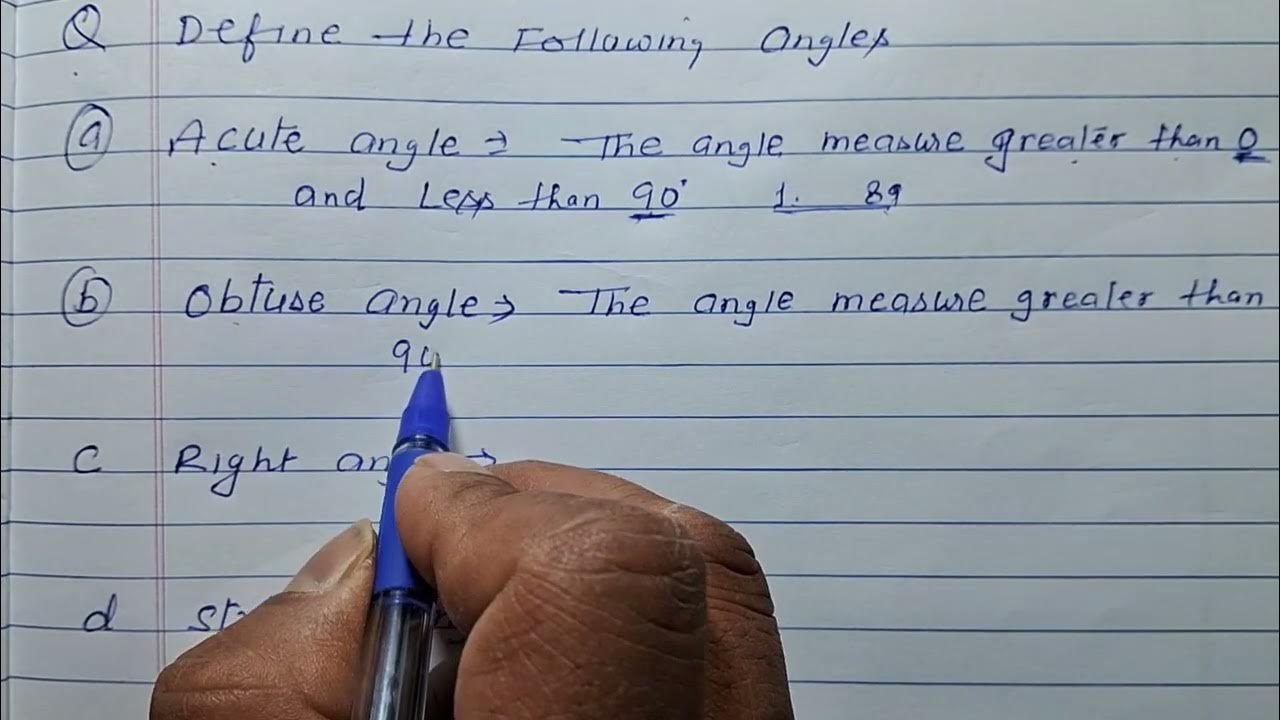 Q Define the Following angles
a Acute angle ⇒ The angle measure greater than 0
and Less than 90° 1. 89
b Obtuse angle ⇒ The angle measure greater than
90
C Right →
d